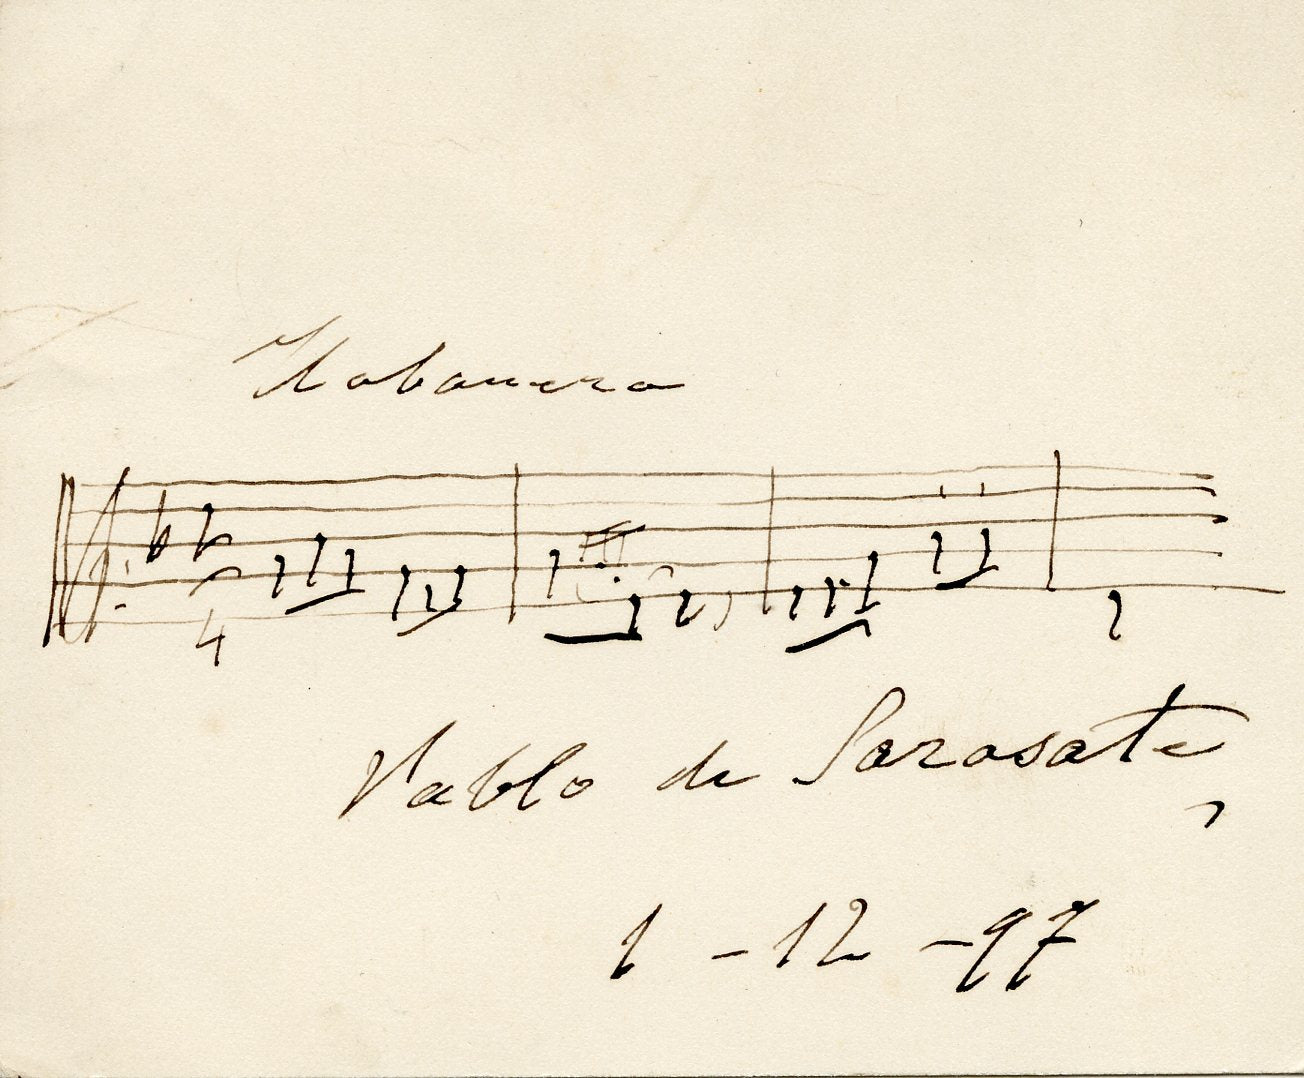 Habanera
2
4
Pablo de Sarasate
1 - 12 - 97